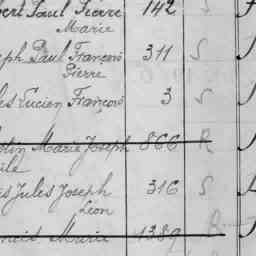 bert Paul Pierre 142 S
Marie
eph Paul François 311 S
Pierre
es Lucien François 3 S
Marie Joseph 866 R
ile
es Jules Joseph 316 S
Léon
Marie 1389 R